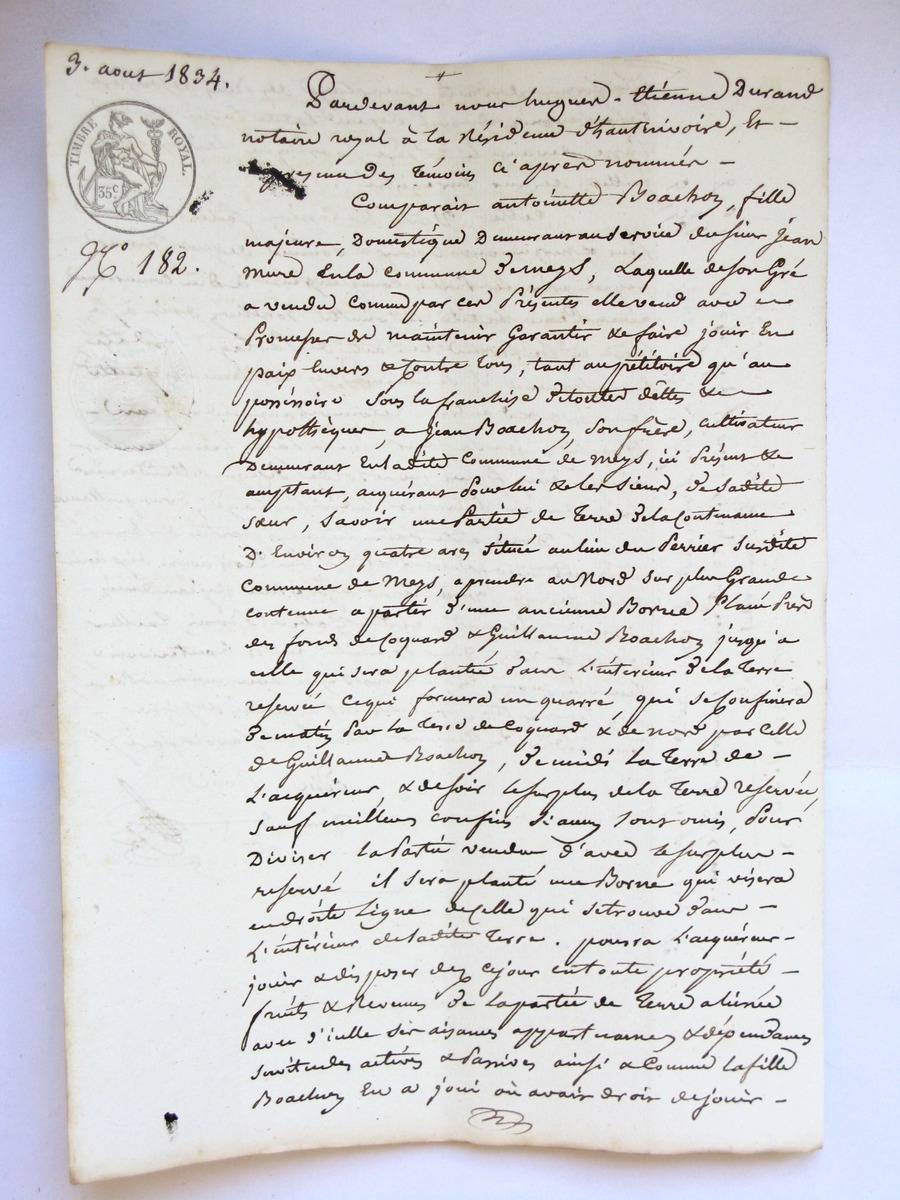 3. aout 1834.
TIMBRE ROYAL.
35 c
N.º 182.
Pardevant nous hugues-Etienne Durand
notaire royal à la Résidence d'hauterivoire, Et
En presence des témoins ci après nommés
Comparait antoinette Boachon, fille
majeure, Domestique Demeurant au service du sieur Jean
mure En la commune de meys, Laquelle de son Gré
a vendu comme par ces Présentes elle vend avec
Promesse de maintenir Garantir & faire jouir En
paix Envers & Contre Tous, tant au pétitoire qu'au
possessoire sous la franchise de toutes dêttes &
hypothèques, a Jean Boachon, son frère, cultivateur
Demeurant En ladite Commune de Meys, ici Présent &
acceptant, acquérant Pour lui & les siens, de sadite
sœur, savoir une Partie de Terre de la Contenance
D'Environ quatre ares située au lieu du Perrier susdite
Commune de Meys, a prendre au Nord sur plus Grande
contenue a partir d'une ancienne Borne Planté Près
des fonds de Coquard & Guillaume Boachon jusqu'a
celle qui sera plantée dans L'intérieur de la Terre
reservée ce qui formera un quarré, qui se Confinera
de matin Par la Terre de Coquard & de nord par Celle
de Guillaume Boachon, de midi la Terre de
L'acquéreur, & de soir le surplus de la Terre reservée,
sauf meilleurs confins si aucuns sont omis, Pour
Diviser la Partie vendue d'avec le surplus
reservé il sera planté une Borne qui visera
en droite Ligne de Celle qui se trouve dans
L'intérieur de ladite Terre. pourra L'acquéreur
jouir & disposer dez ce jour en toute propriété
fruits & Revenus de la partie de Terre aliénée
avec d'icelle ses aisances appartenances & dépendances
servitudes actives & Passives ainsi & Comme la fille
Boachon En a joui où avait droit de jouir